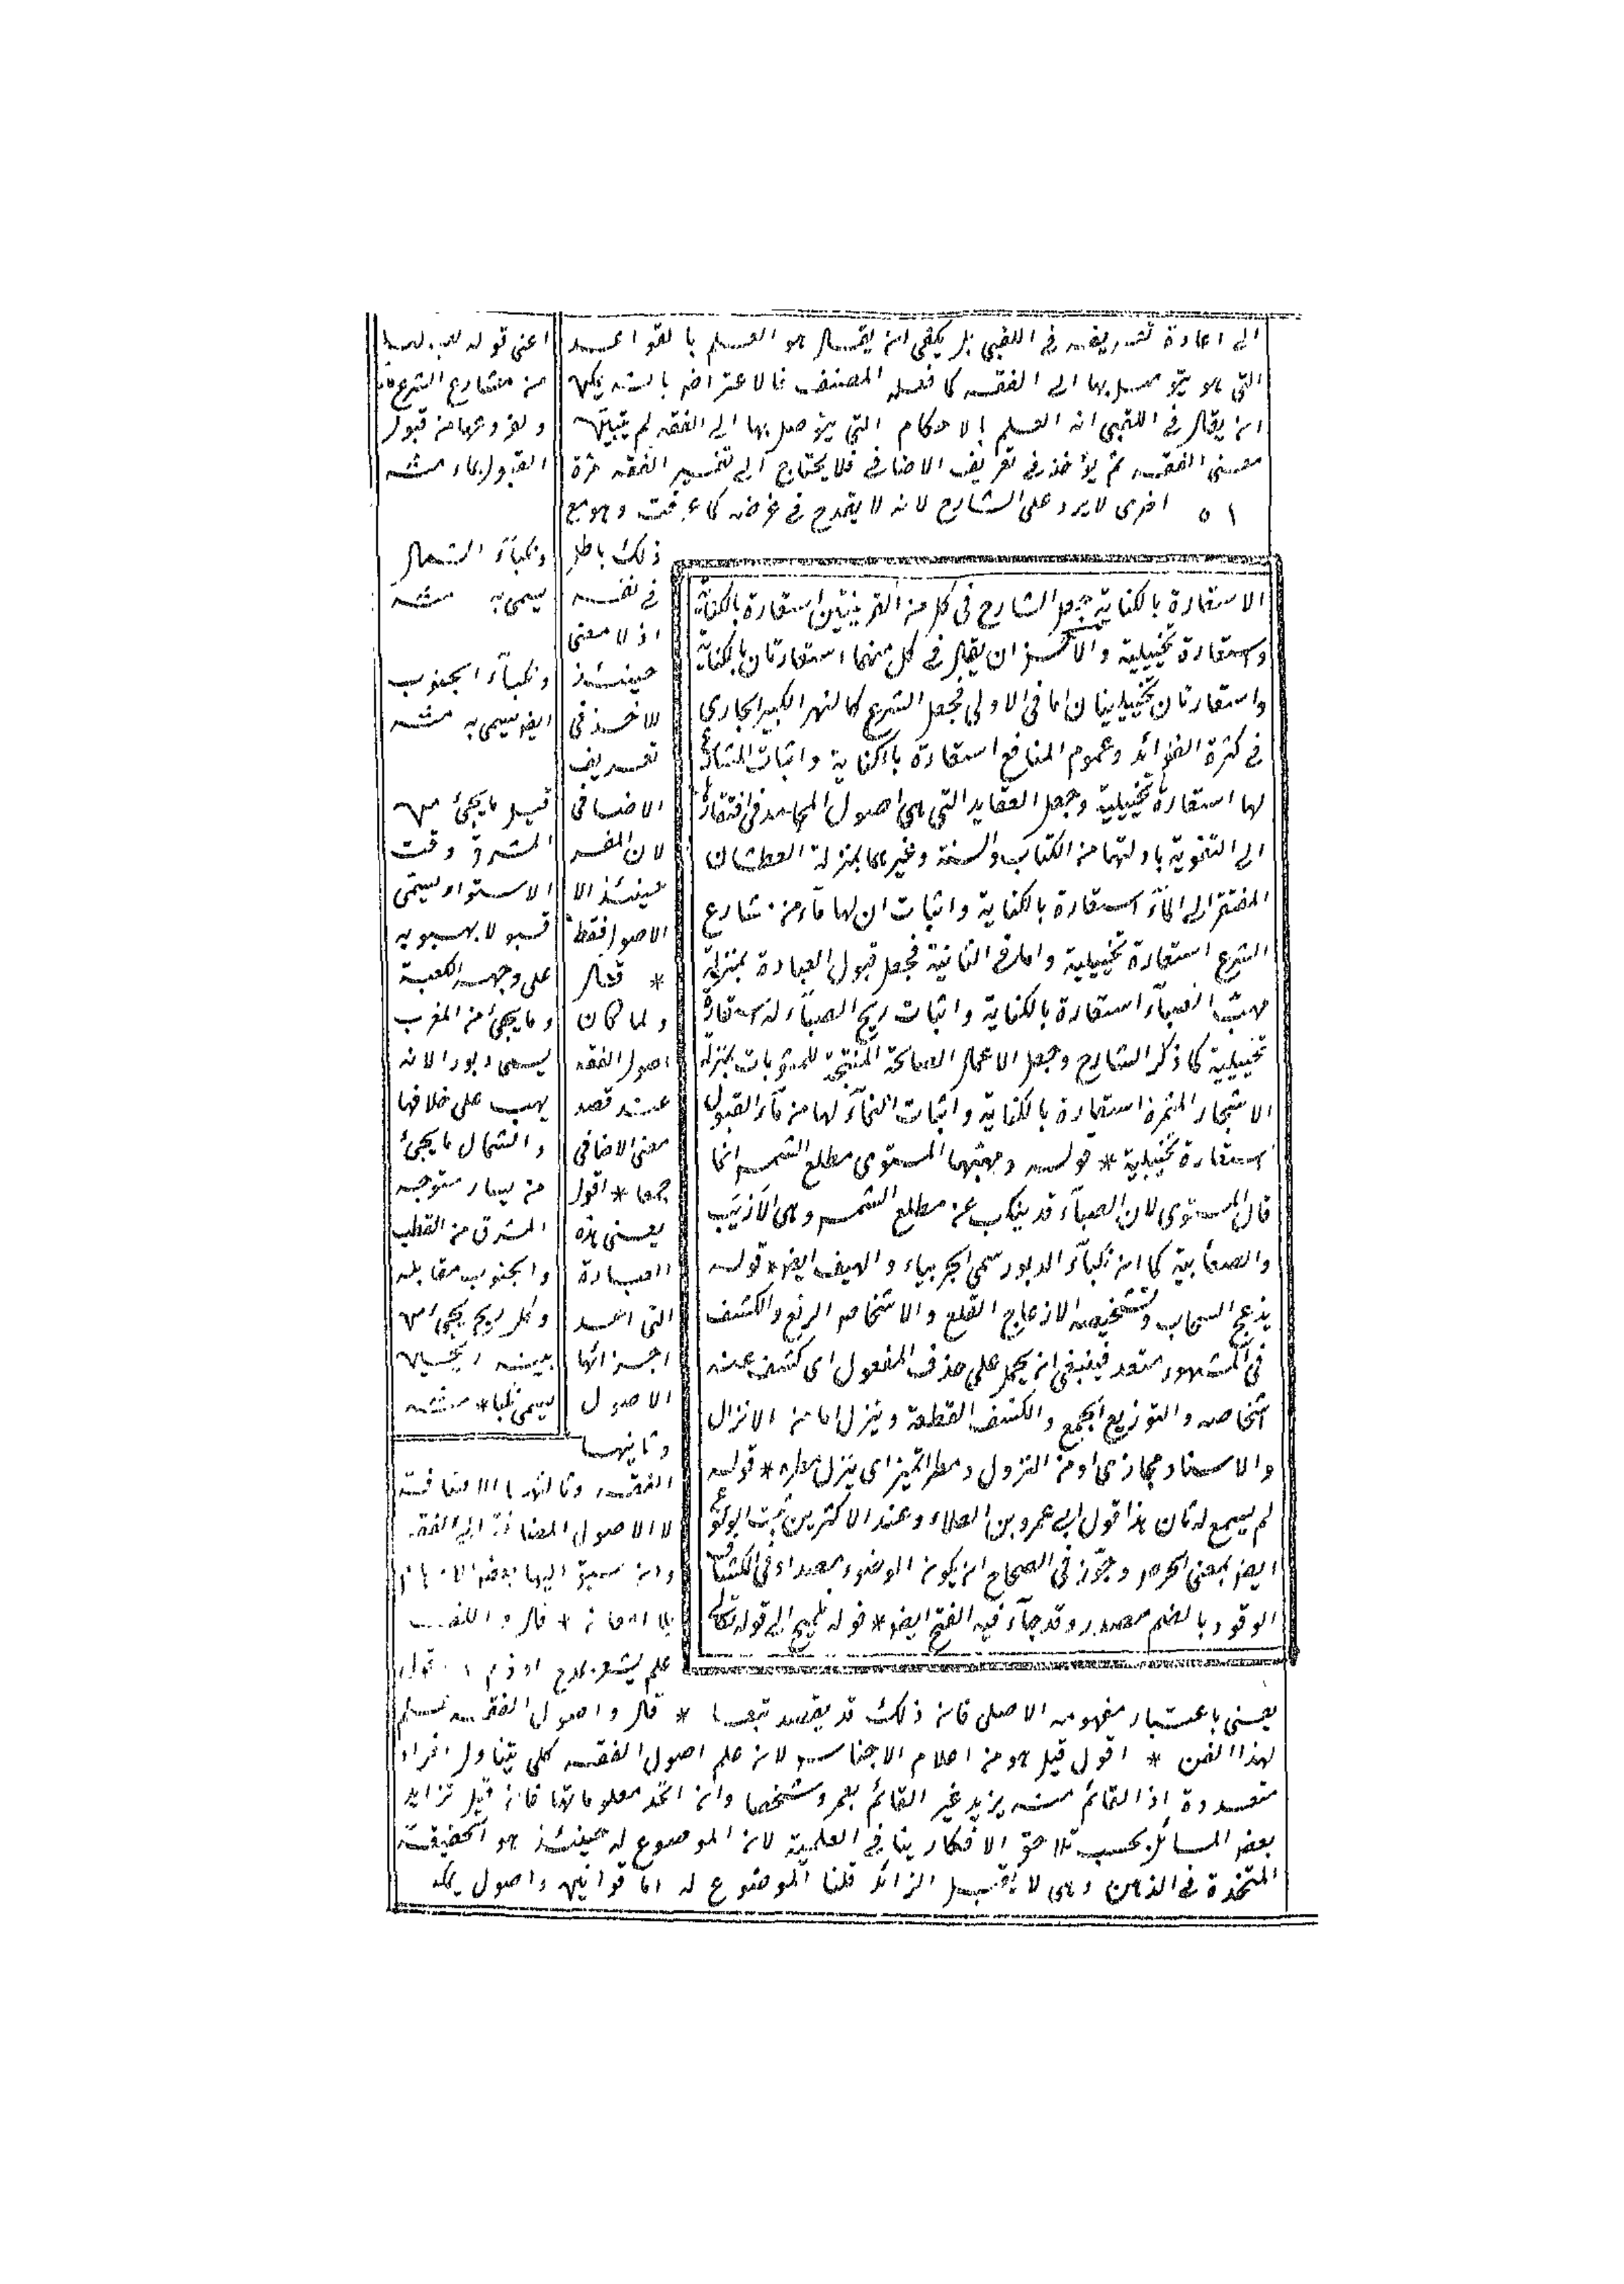 الى اعادة تعريفه فى اللقبى بل يكفى ان يقال هو العلم بالقواعد
التى هو يتوصل بها الى الفقه كما فعله المصنف فالاعتراض بانه يمكن
ان يقال فى اللقبى انه العلم بالاحكام التى يتوصل بها الى الفقه لم يتبين
معنى الفقه ثم يؤخذ فى تعريف الاضافى فلا يحتاج الى تفسير الفقه مرة
٥١ اخرى لا يرد على الشارح لانه لا يقدح فى غرضه كما عرفت وهو مع
ذلك باطل
فى نفسه
اذ لا معنى
حينئذ
للاخذ فى
تعريف
الاضافى
لان المفسر
حينئذ الا
الاصول فقط
* قال
ولما كان
اصول الفقه
عند قصد
معنى الاضافى
جمعا * اقول
يعنى هذه
العبارة
التى احد
اجزائها
الاصول
وثانيها
الفقه وثالثها الاضافة
لا الاصول المضافة الى الفقه
بلا اضافة * قال واللقب
علم يشعر بمدح او ذم اقول
يعنى باعتبار مفهومه الاصلى فان ذلك قد يقصد تبعا * قال واصول الفقه علم
لهذا الفن * اقول قيل هو من اعلام الاجناس لان علم اصول الفقه كلى يتناول افرادا
متعددة اذ القائم منه بزيد غير القائم بعمرو شخصا وان اتحد معلوماتهما فان قيل تزايد
بعض المسائل بحسب تلاحق الافكار ينافى العلمية لان الموضوع له حينئذ هو الحقيقة
المتحدة فى الذهن وهى لا يقبل الزائد قلنا الموضوع له اما قوانين واصول يمكن
الاستعارة بالكناية جعل الشارح فى كل من القرينتين استعارة بالكناية
واستعارة تخييلية والاحسن ان يقال فى كل منهما استعارتان بالكناية
واستعارتان تخييليتان اما فى الاولى فجعل الشرع كالنهر الكبير الجارى
فى كثرة الفوائد وعموم المنافع استعارة بالكناية واثبات المشارع
لها استعارة تخييلية وجعل العقايد التى هى اصول المحامد فى افتقارها
الى التقوية بادلتها من الكتاب والسنة وغيرهما بمنزلة العطشان
المفتقر الى الماء استعارة بالكناية واثبات ان لها ماء من مشارع
الشرع استعارة تخييلية واما فى الثانية فجعل قبول العبادة بمنزلة
مهب الصباء استعارة بالكناية واثبات ريح الصباء له استعارة
تخييلية كما ذكر الشارح وجعل الاعمال الصالحة المنتجة للمثوبات بمنزلة
الاشجار المثمرة استعارة بالكناية واثبات النماء لها من ماء القبول
استعارة تخييلية * قوله ومهبها المستوى مطلع الشمس انما
قال المستوى لان الصباء قد ينكب عن مطلع الشمس وهى الازيب
والصابية كما ان نكباء الدبور سمى الجربياء والهيف ايضا * قوله
يزعج السحاب وتشخيصه الازعاج القلع والاشخاص الرفع والكشف
فى المشهور متعد فينبغى ان يحمل على حذف المفعول اى كشف عنه
اشخاصه والتوزيع الجمع والكشف القطعة وينزل اما من الانزال
والاسناد مجازى او من النزول ومطر التميز اى ينزل مطره * قوله
لم يسمع له ثان هذا قول ابى عمرو بن العلاء وعند الاكثرين ثبت الولوع
ايضا بمعنى الحرص وجوز فى الصحاح ان يكون الوضوء مصدرا وفى الكشاف
الوقود بالضم مصدر وقد جاء فيه الفتح ايضا * قوله تلميح الى قوله تعالى
من مشارع الشرع
القبول نماء منه
ونكباء الشمال
يسمى به منه
ونكباء الجنوب
ايضا يسمى به منه
قيل ما يجئ من
المشرق وقت
الاستواء يسمى
قبولا بهبوبه
على وجه الكعبة
وما يجئ من المغرب
يسمى دبورا لانه
يهب على خلافها
والشمال ما يجئ
من يسار متوجه
المشرق من القطب
والجنوب مقابله
وكل ريح يجئ من
بين ريحين
يسمى نكبا * منه